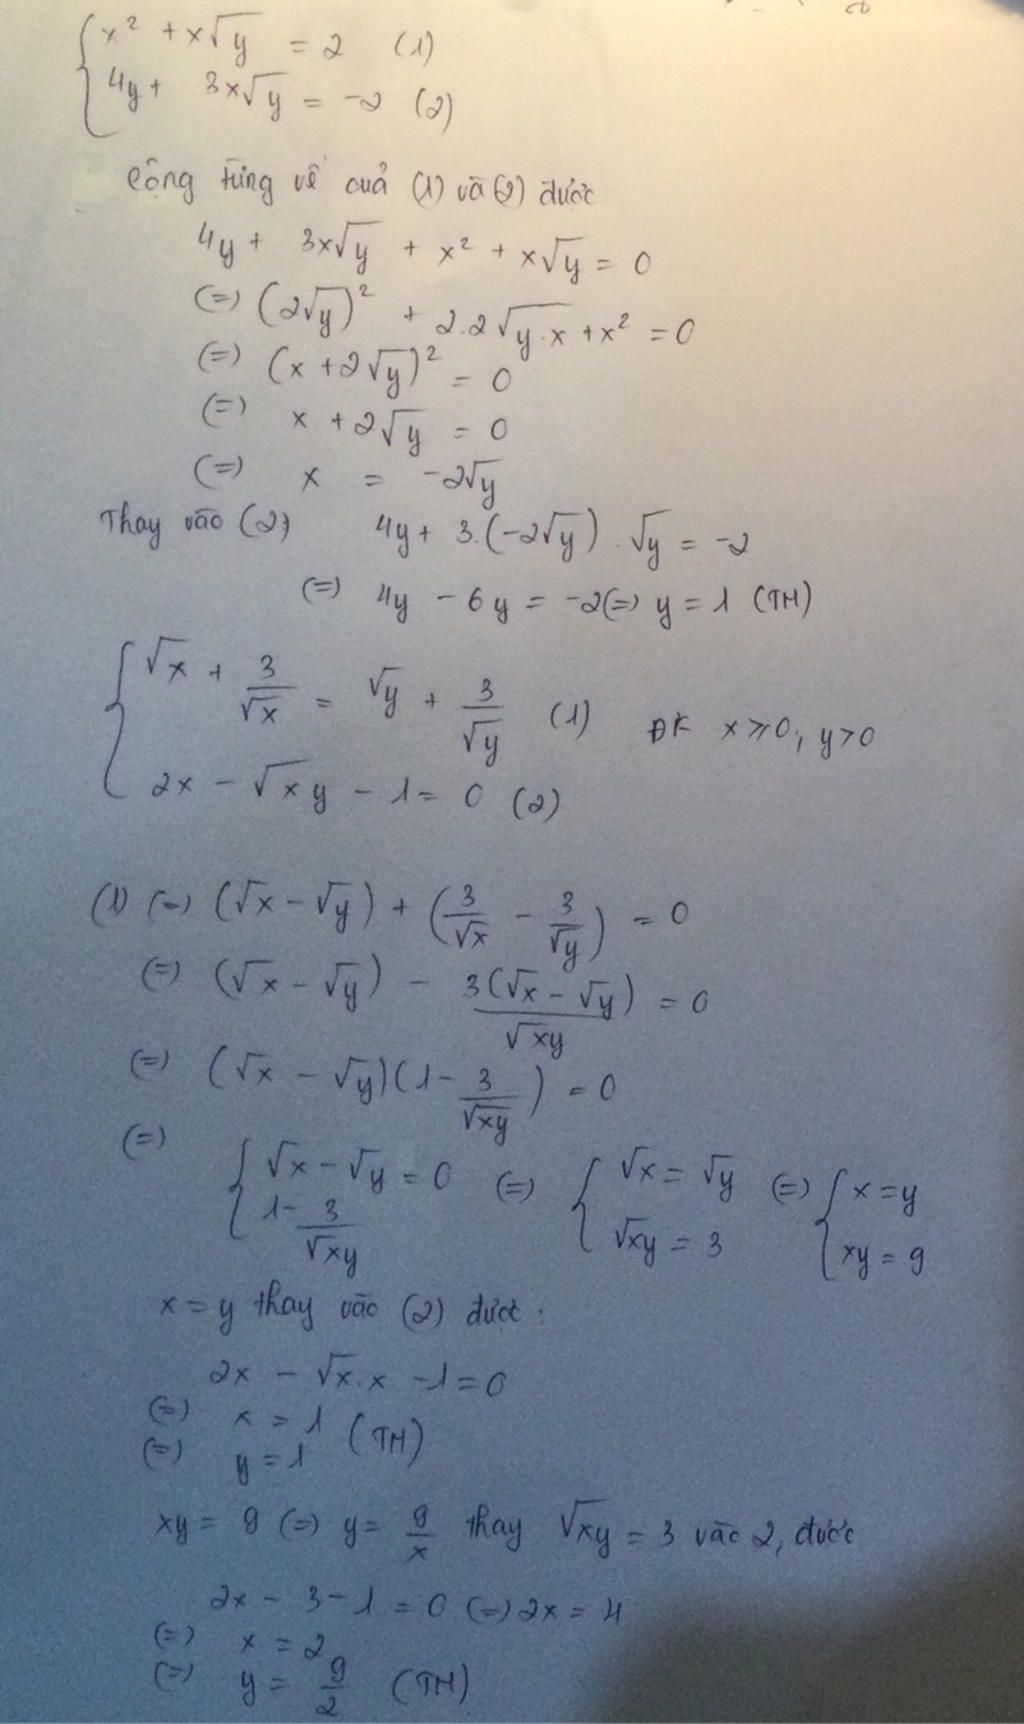 x² + x√y = 2 (1)
4y + 3x√y = -2 (2)
Cộng từng vế của (1) và (2) được
4y + 3x√y + x² + x√y = 0
(=) (2√y)² + 2.2√y.x + x² = 0
(=) (x + 2√y)² = 0
(=) x + 2√y = 0
(=) x = -2√y
Thay vào (2) 4y + 3.(-2√y).√y = -2
(=) 4y - 6y = -2 (=) y = 1 (TM)
√x + 3/√x = √y + 3/√y (1) ĐK x ≥ 0, y > 0
2x - √xy - 1 = 0 (2)
(1) (=) (√x - √y) + (3/√x - 3/√y) = 0
(=) (√x - √y) - 3(√x - √y)/√xy = 0
(=) (√x - √y)(1 - 3/√xy) = 0
(=) { √x - √y = 0 (=) { √x = √y (=) { x = y
1 - 3/√xy √xy = 3 xy = 9
x = y thay vào (2) được:
2x - √x.x - 1 = 0
(=) x = 1 (TM)
(=) y = 1
xy = 9 (=) y = 9/x thay √xy = 3 vào 2, được
2x - 3 - 1 = 0 (=) 2x = 4
(=) x = 2
(=) y = 9/2 (TM)